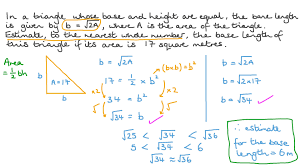 In a triangle whose base and height are equal, the base length
is given by b = √2A, where A is the area of the triangle.
Estimate, to the nearest whole number, the base length of
this triangle if its area is 17 square metres.
Area
= 1/2 bh
b
A=17
b
b = √2A
(b×b = b²)
17 = 1/2 × b²
×2
×2
34 = b²
√
√
√34 = b
√25 < √34 < √36
5 < √34 < 6
√34 ≈ √36
b = √2A
b = √2×17
b = √34
∴ estimate
for the base
length = 6m